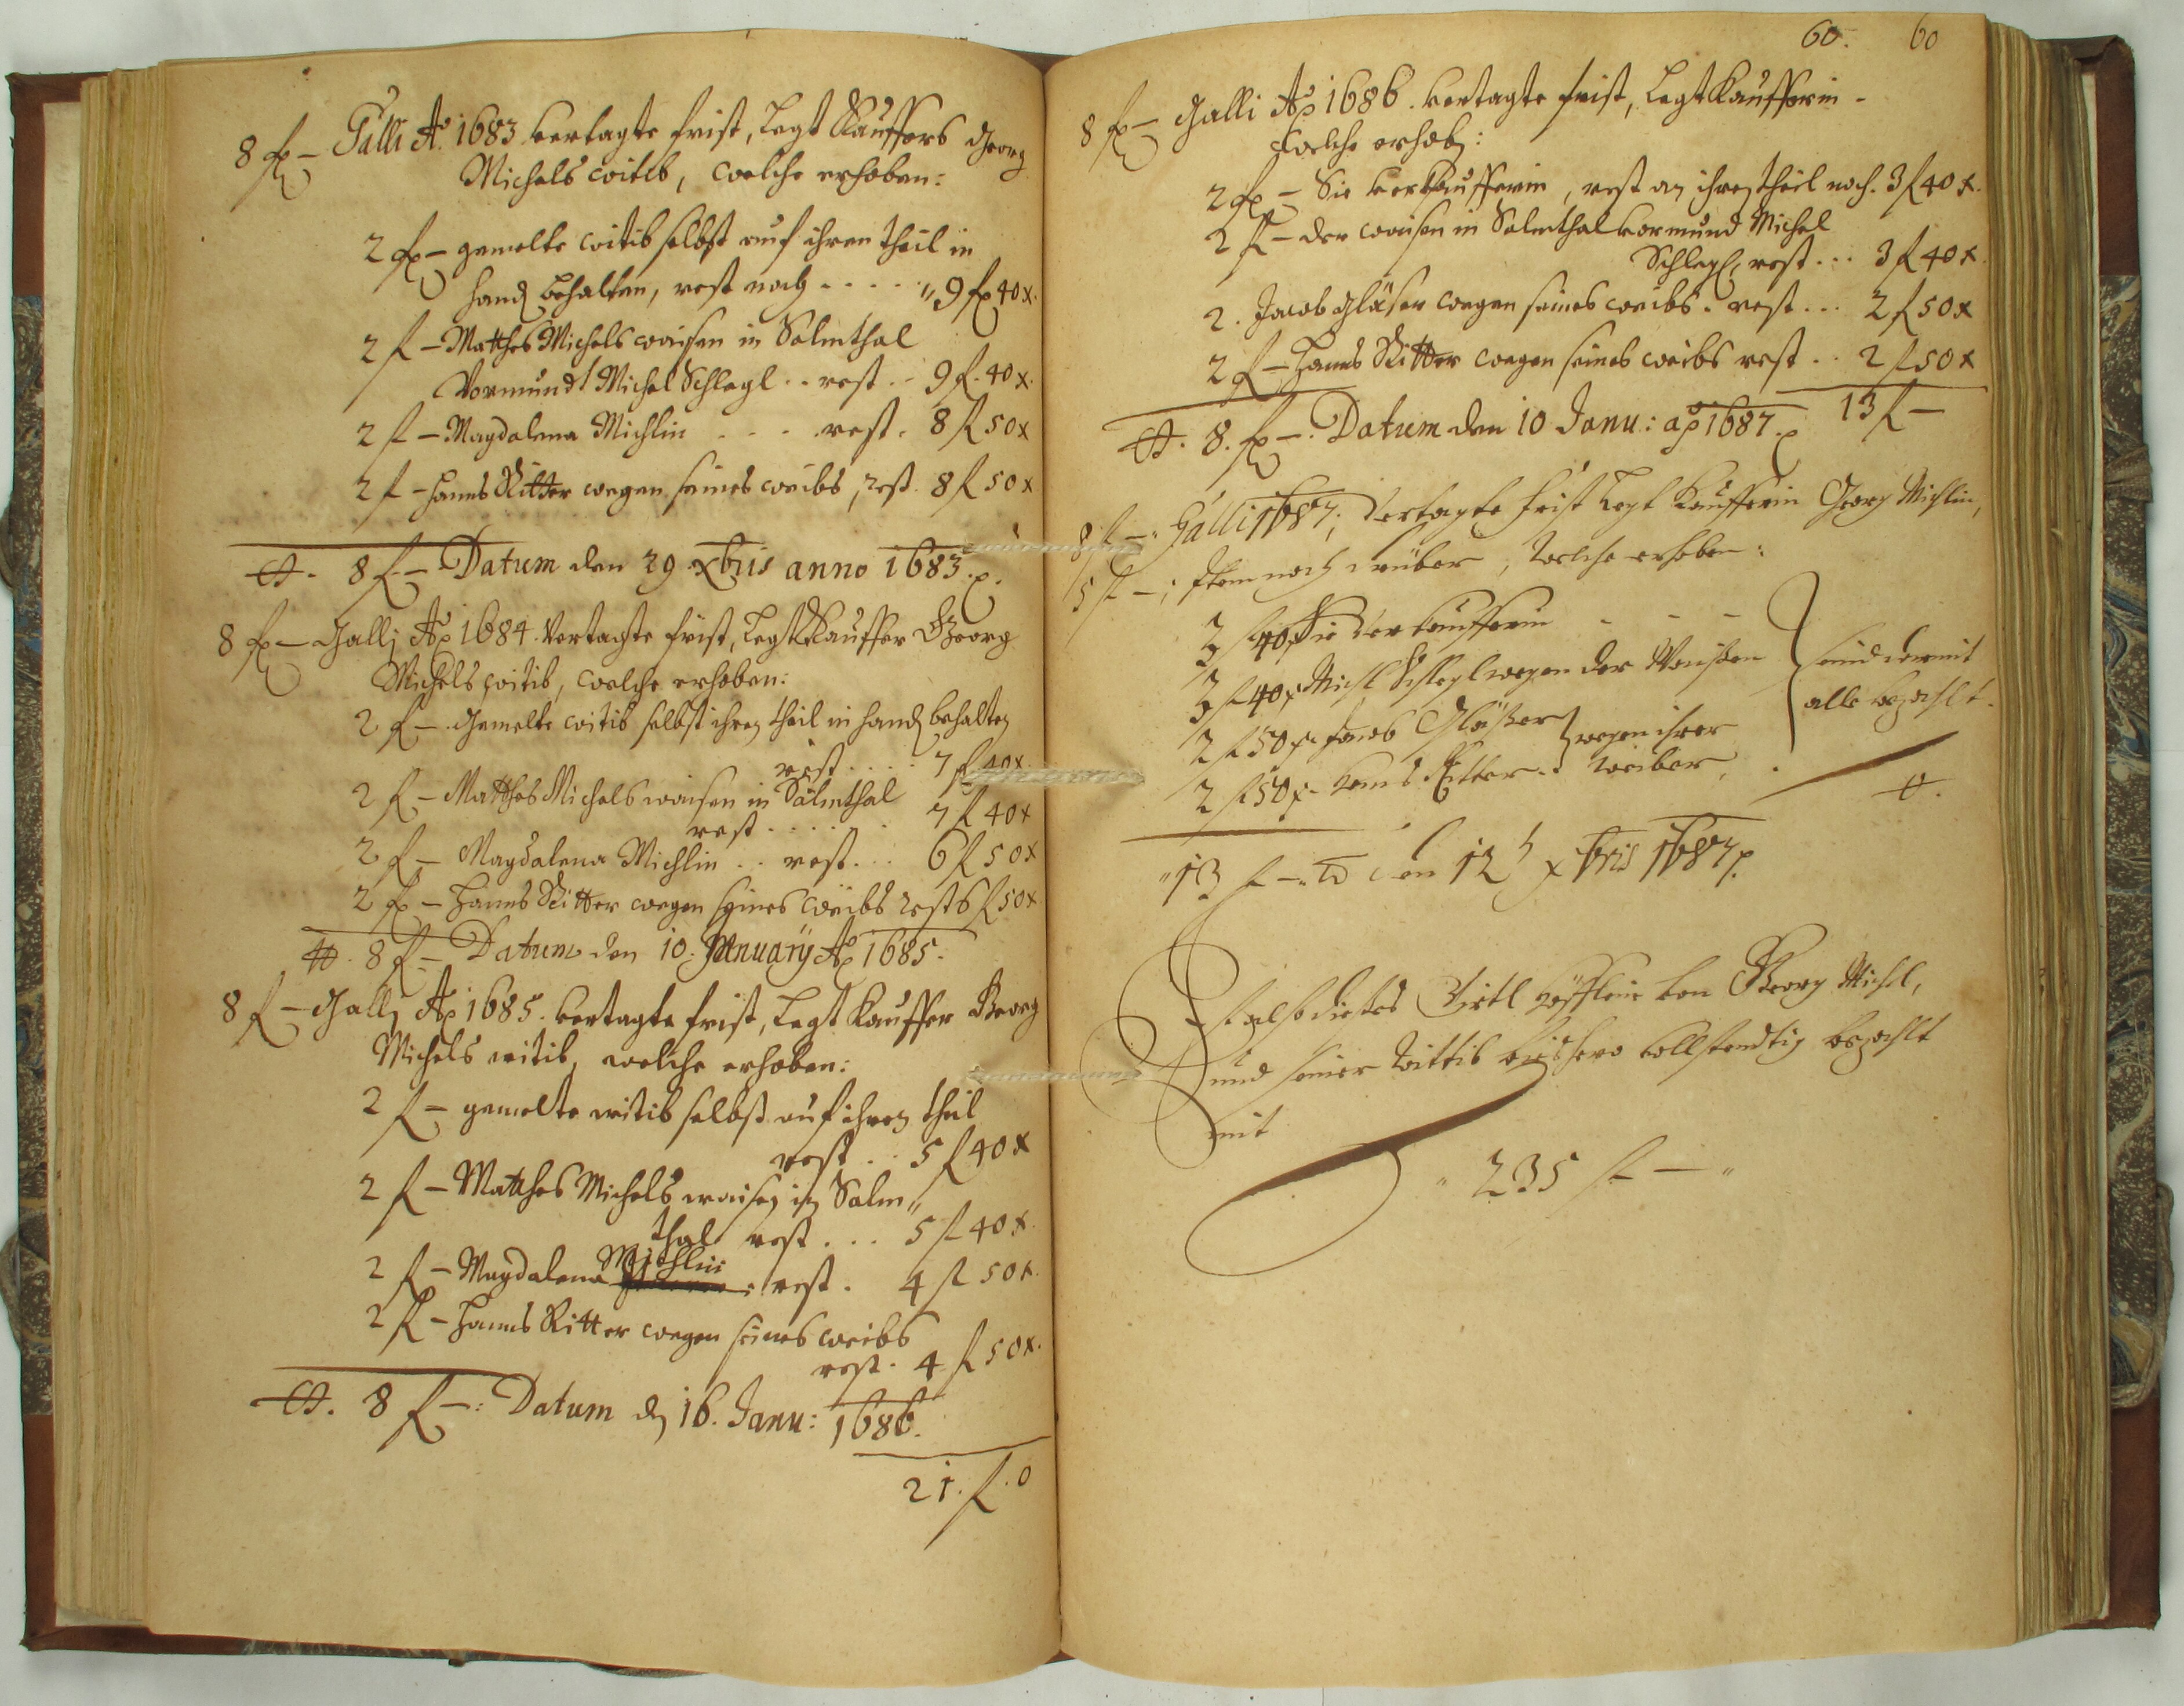 8 f – Galli Ao. 1683 vertagte frist, Legt Kauffers Georg
Michels witib, welche erhoben:
2 f – gemelte witib selbst auf ihren theil in
handt behalten, rest noch .... 9 f 40 x.
2 f – Matthes Michels waisen in Salmthal
Vormundt Michel Schlegl .. rest .. 9 f. 40 x.
2 f – Magdalena Michlin . . . . rest . 8 f 50 x
2 f – Hanns Ritter wegen seines weibs, rest. 8 f 50 x
8 f – Datum den 29 xbris anno 1683.
8 f – Galli Ao 1684. Vertagte frist, Legt Kauffer Georg
Michels witib, welche erhoben:
2 f – Gemelte witib selbst ihren theil in handt behalten
rest .... 7 f 40 x.
2 f – Matthes Michels waisen in Salmthal
rest . . . . . 7 f 40 x
2 f – Magdalena Michlin .. rest ... 6 f 50 x
2 f – Hanns Ritter wegen seines weibs rest 6 f 50 x
8 f – Datum den 10. January Ao 1685.
8 f – Galli Ao 1685. vertagte frist, Legt Kauffer Georg
Michels witib, welche erhoben:
2 f – gemelte witib selbst auf ihren theil
rest .. 5 f 40 x
2 f – Matthes Michels waisen in Salm„
thal rest ... 5 f 40 x.
2 f – Magdalena Michlin : rest . 4 f 50 x.
2 f – Hanns Ritter wegen seines weibs
rest . 4 f 50 x.
8 f –: Datum den 16. Janu: 1686.
21. f. 0
60. 60
8 f – Galli Ao 1686. vertagte frist, Legt Kaufferin –
welche erhoben:
2 f – Sie verkaufferin, rest an ihren theil noch. 3 f 40 x.
2 f – der waisen in Salmthal vormund Michel
Schlegl, rest ... 3 f 40 x.
2. Jacob Gläser wegen seines weibs . rest ... 2 f 50 x
2 f – Hanns Ritter wegen seines weibs rest .. 2 f 50 x
8. f –. Datum den 10 Janu: ao 1687. 13 f –
8 f –. Galli 1687, Vertagte frist Legt Kaufferin Georg Michlin,
5 f –: Item noch drüber, Welche erhoben:
3 f 40 x Sie Verkaufferin . – – –
3 f 40 x Michl Schlegl wegen der Waisen } seind darmit
2 f 50 x Jacob Gläßer } wegen ihrer alle bezahlt.
2 f 50 x Hans Ritter . weiber,
„13 f –„ den 12 xbris 1687.
Ist also dieses Virtl höfflein von Georg Michl,
und seiner Wittib bißhero vollstendtig bezahlt
mit
„ 235 f – „